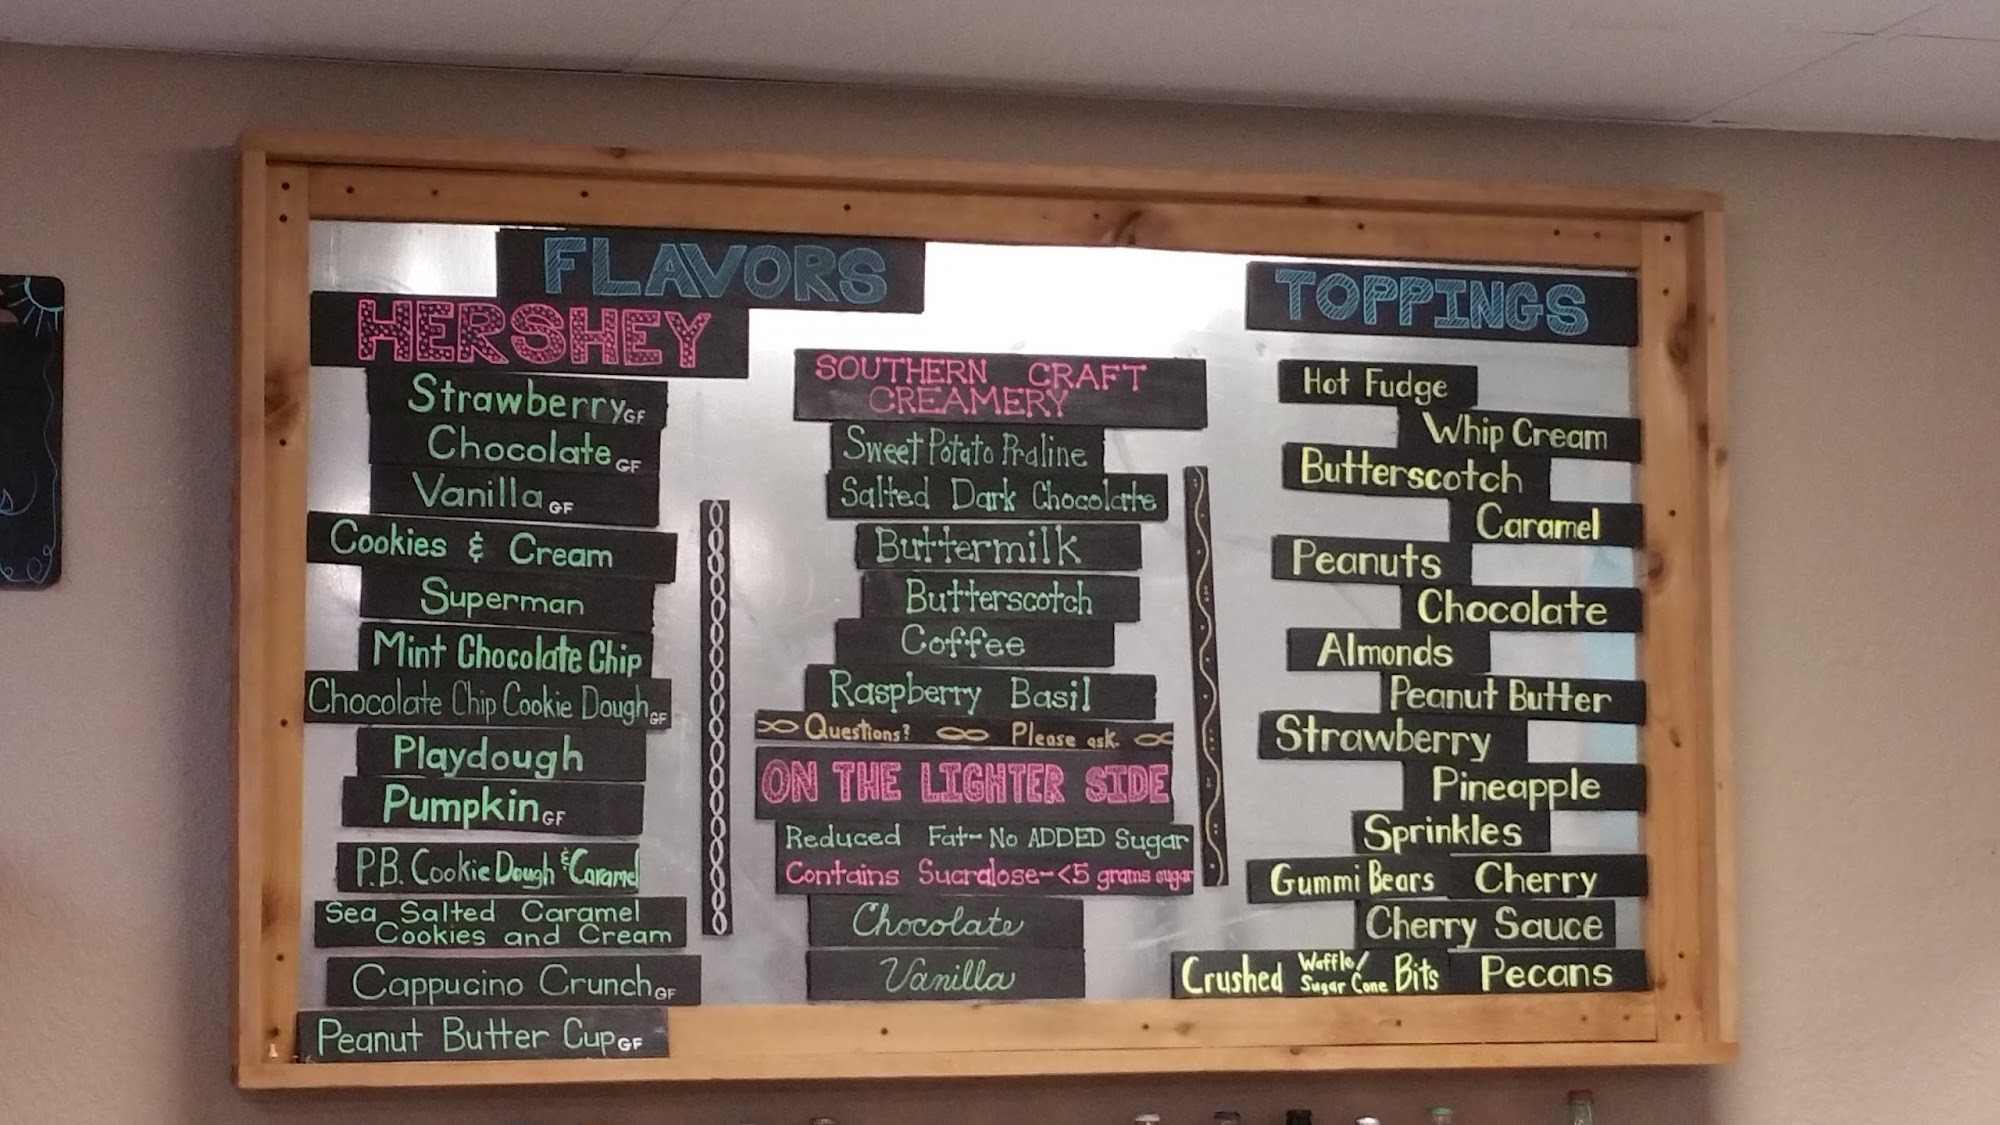 FLAVORS
HERSHEY
Strawberry GF
Chocolate GF
Vanilla GF
Cookies & Cream
Superman
Mint Chocolate Chip
Chocolate Chip Cookie Dough GF
Playdough
Pumpkin GF
P.B. Cookie Dough & Caramel
Sea Salted Caramel
Cookies and Cream
Cappucino Crunch GF
Peanut Butter Cup GF
SOUTHERN CRAFT
CREAMERY
Sweet Potato Praline
Salted Dark Chocolate
Buttermilk
Butterscotch
Coffee
Raspberry Basil
Questions? Please ask.
ON THE LIGHTER SIDE
Reduced Fat- No ADDED Sugar
Contains Sucralose-<5 grams sugar
Chocolate
Vanilla
TOPPINGS
Hot Fudge
Whip Cream
Butterscotch
Caramel
Peanuts
Chocolate
Almonds
Peanut Butter
Strawberry
Pineapple
Sprinkles
Gummi Bears Cherry
Cherry Sauce
Crushed Waffle/ Sugar Cone Bits Pecans